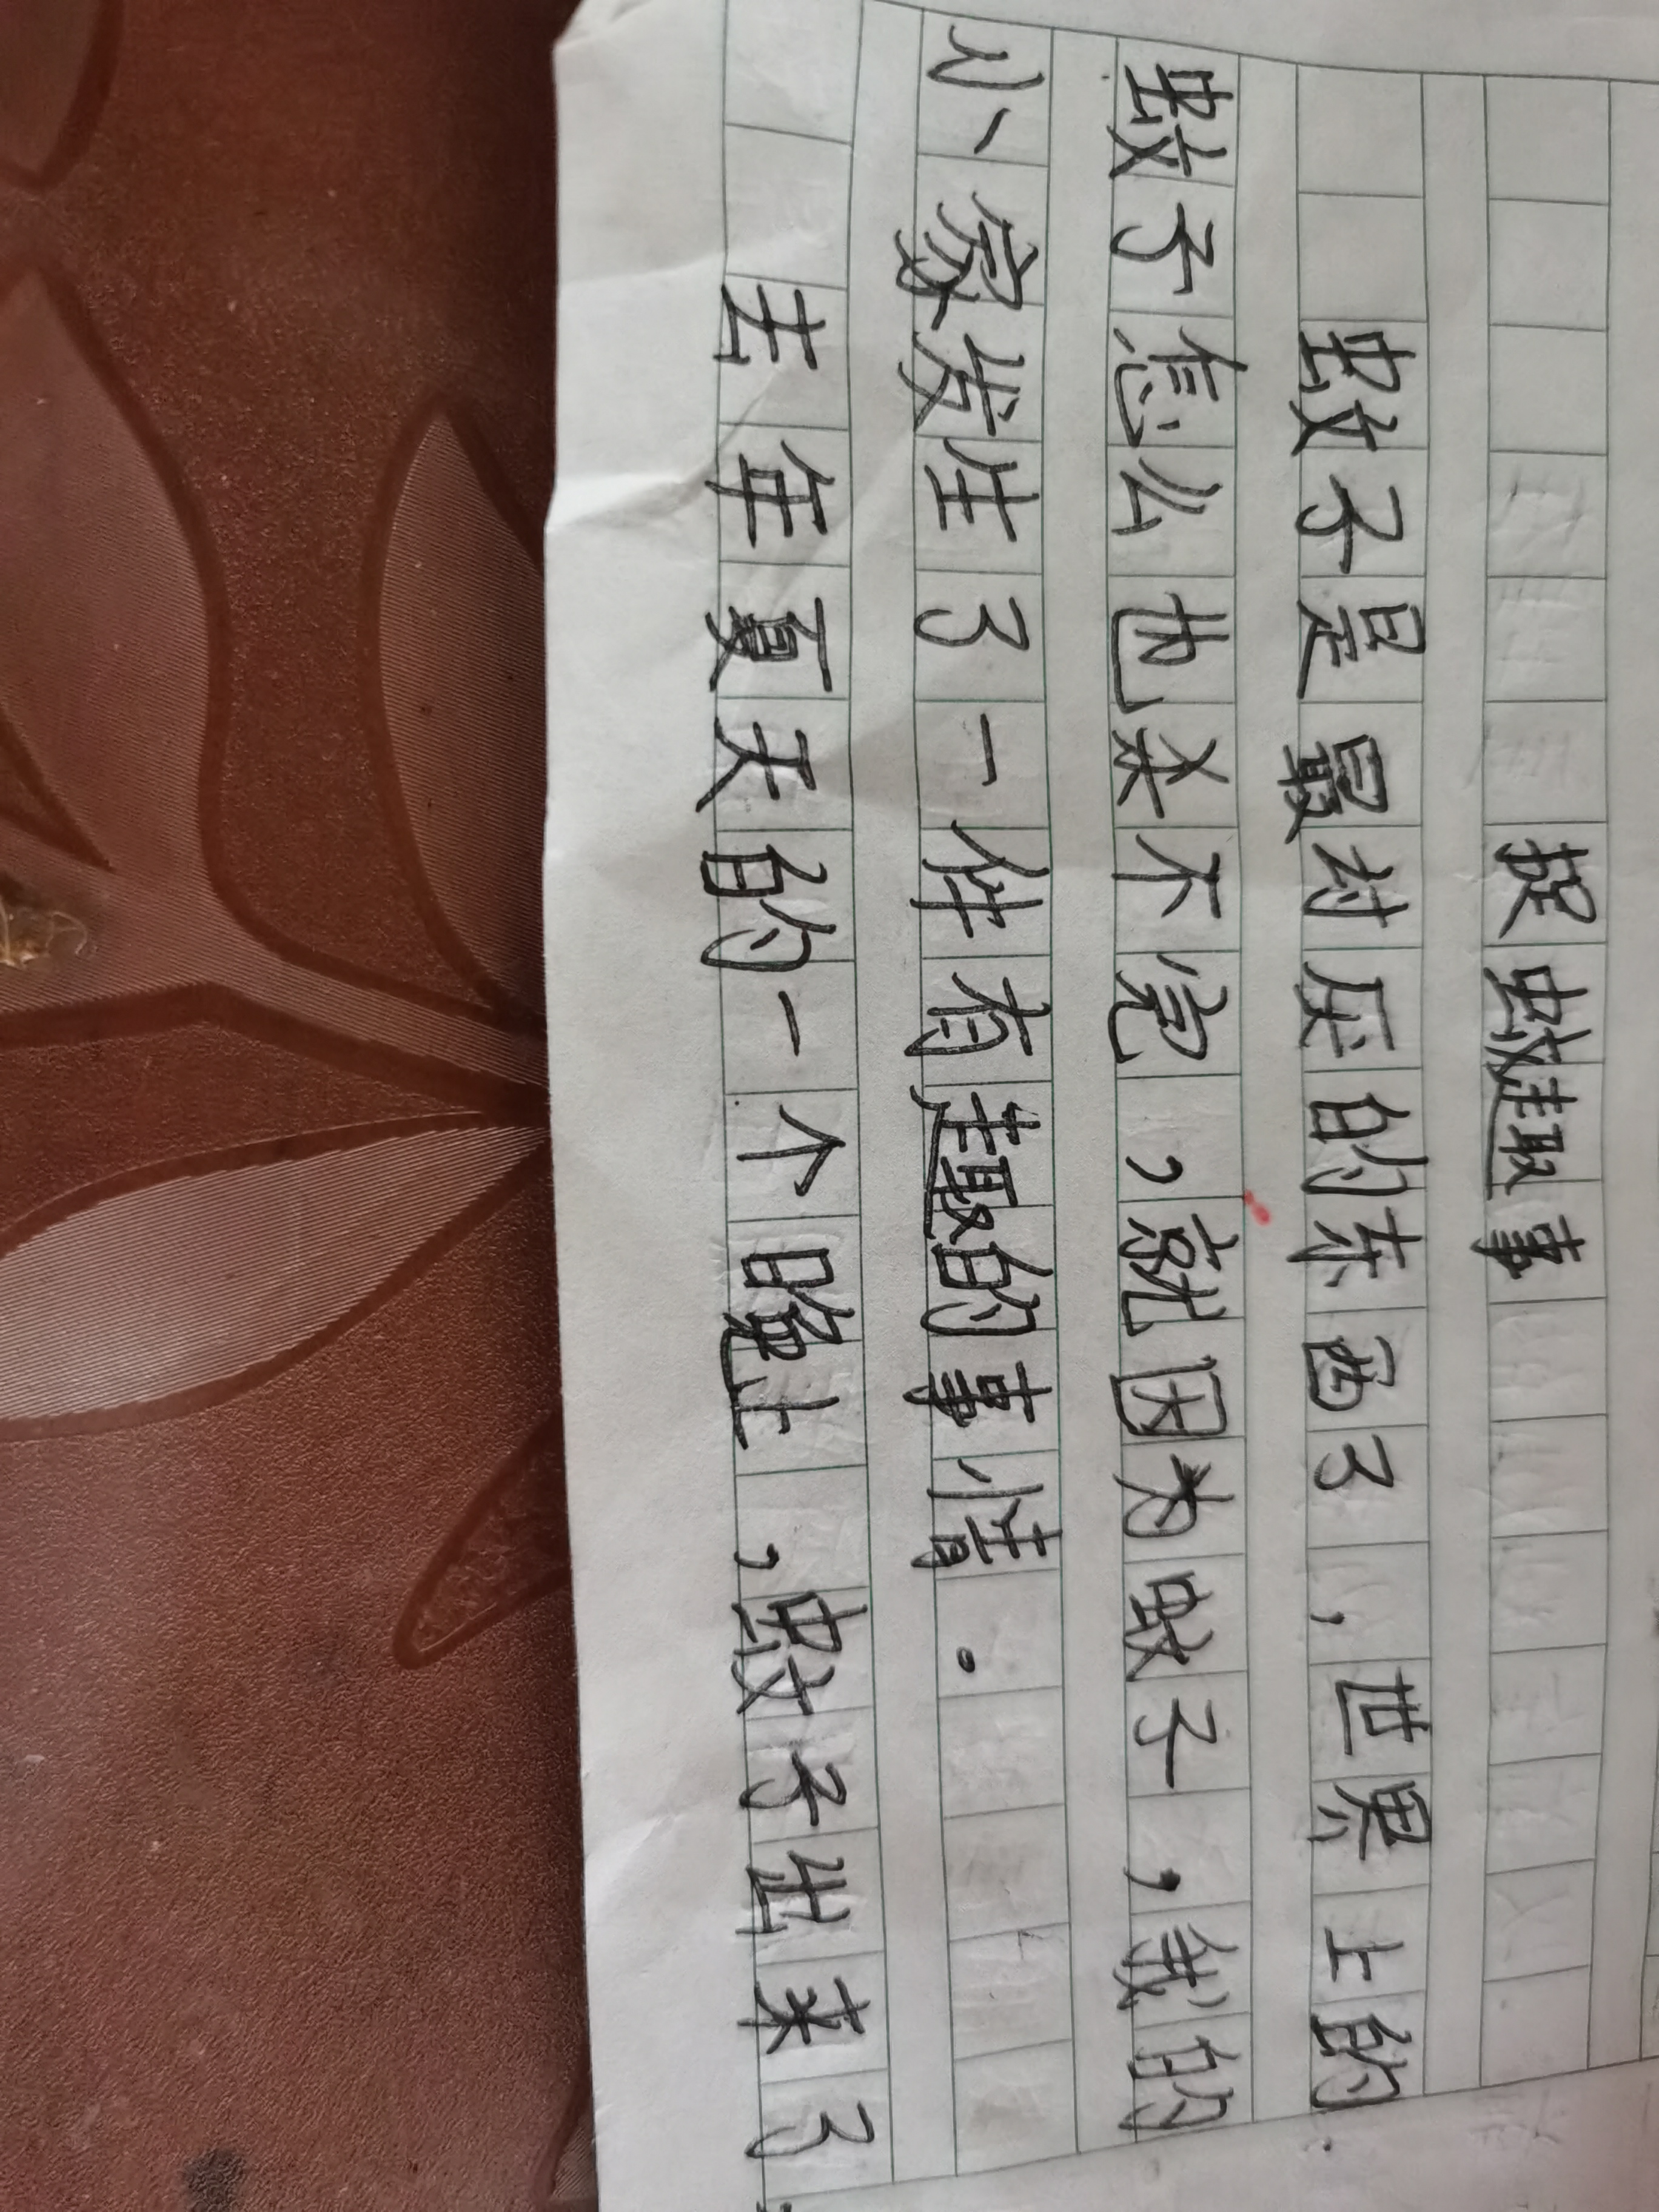 捉蚊趣事
蚊子是最讨厌的东西了,世界上的
蚊子怎么也杀不完,就因为蚊子,我的
小家发生了一件有趣的事情.
去年夏天的一个晚上,蚊子出来了